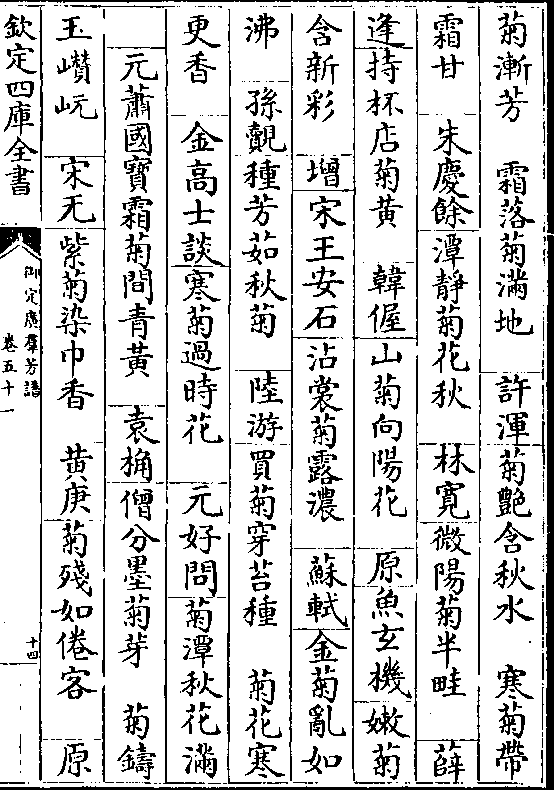 菊漸芳　霜落菊滿地　許渾菊艶含秋水　寒菊帶
霜甘　朱慶餘潭靜菊花秋　林寛微陽菊半畦　薛
逢持杯店菊黄　韓偓山菊向陽花　原魚玄機嫩菊
含新彩　增宋王安石沾裳菊露濃　蘇軾金菊亂如
沸　孫覿種芳茹秋菊　陸游買菊穿苔種　菊花寒
更香　金高士談寒菊過時花　元好問菊潭秋花滿
元蕭國寶霜菊間青黄　袁桷僧分墨菊芽　菊鑄
玉巑岏　宋无紫菊染巾香　黄庚菊殘如倦客　原
欽定四庫全書
御定廣羣芳譜
卷五十一
十四